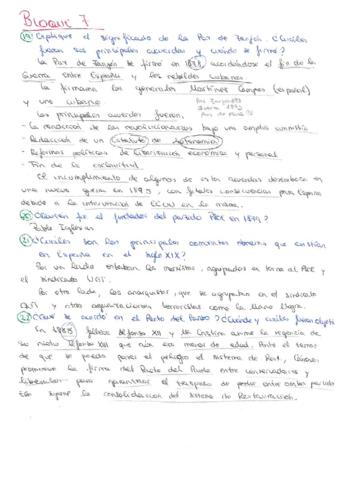 Bloque 7
19. Explique el significado de la Paz de Zanjón. ¿Cuáles
fueron sus principales acuerdos y cuándo se firmó?
La Paz de Zanjón se firmó en 1878 acordándose el fin de la
Guerra entre España y los rebeldes cubanos.
La firmaron los generales Martínez Campos (español)
y uno cubano
Los principales acuerdos fueron,
- La rendición de los revolucionarios bajo una amplia amnistía
- Redacción de un Estatuto de Autonomía
- Reformas políticas de liberización económica y personal
- Fin de la esclavitud
El incumplimiento de algunos de estos acuerdos desembocó en
una nueva guerra en 1895, con fatales consecuencias para España
debido a la intervención de EEUU en la misma.
20. ¿Quién fue el fundador del partido PSOE en 1879?
Pablo Iglesias
21. ¿Cuáles son las principales corrientes obreras que existían
en España en el siglo XIX?
Por un lado estaban los marxistas, agrupados en torno al PSOE y
el sindicato UGT.
Por otro lado, los anarquistas, que se agrupaban en el sindicato
CNT y otras organizaciones terroristas como la Mano Negra.
22. ¿Qué se acordó en el Pacto del Pardo? ¿Cuándo y cuáles fueron objeti
En 1885 fallece Alfonso XII y Mª Cristina asume la regencia de
su hijo Alfonso XIII que aún era menor de edad. Ante el temor
de que se pueda poner en peligro el sistema de Rest., Cánovas
promueve la firma del Pacto del Pardo entre conservadores y
liberales para garantizar el traspaso de poder entre ambos partido
Esto supone la consolidación del sistema de Restauración.